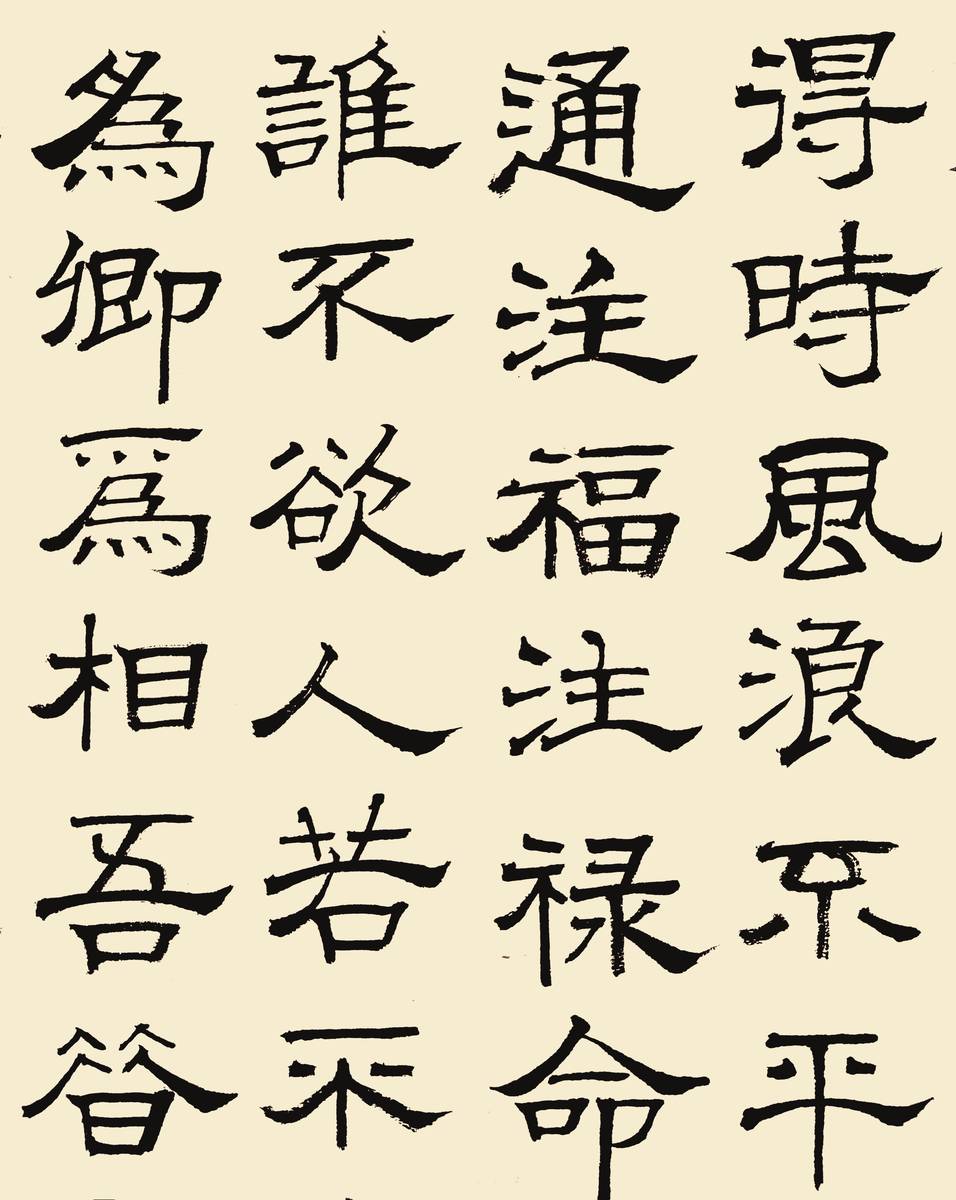 得時風浪不平
通注福注禄命
誰不欲人若不
為卿爲相吾昔